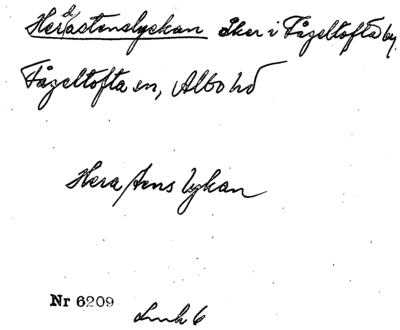 Herrastenslyckan Åker i Fågeltofta by
Fågeltofta sn, Albo hd
Hera stens lykan
Nr 6209
Lmk 6